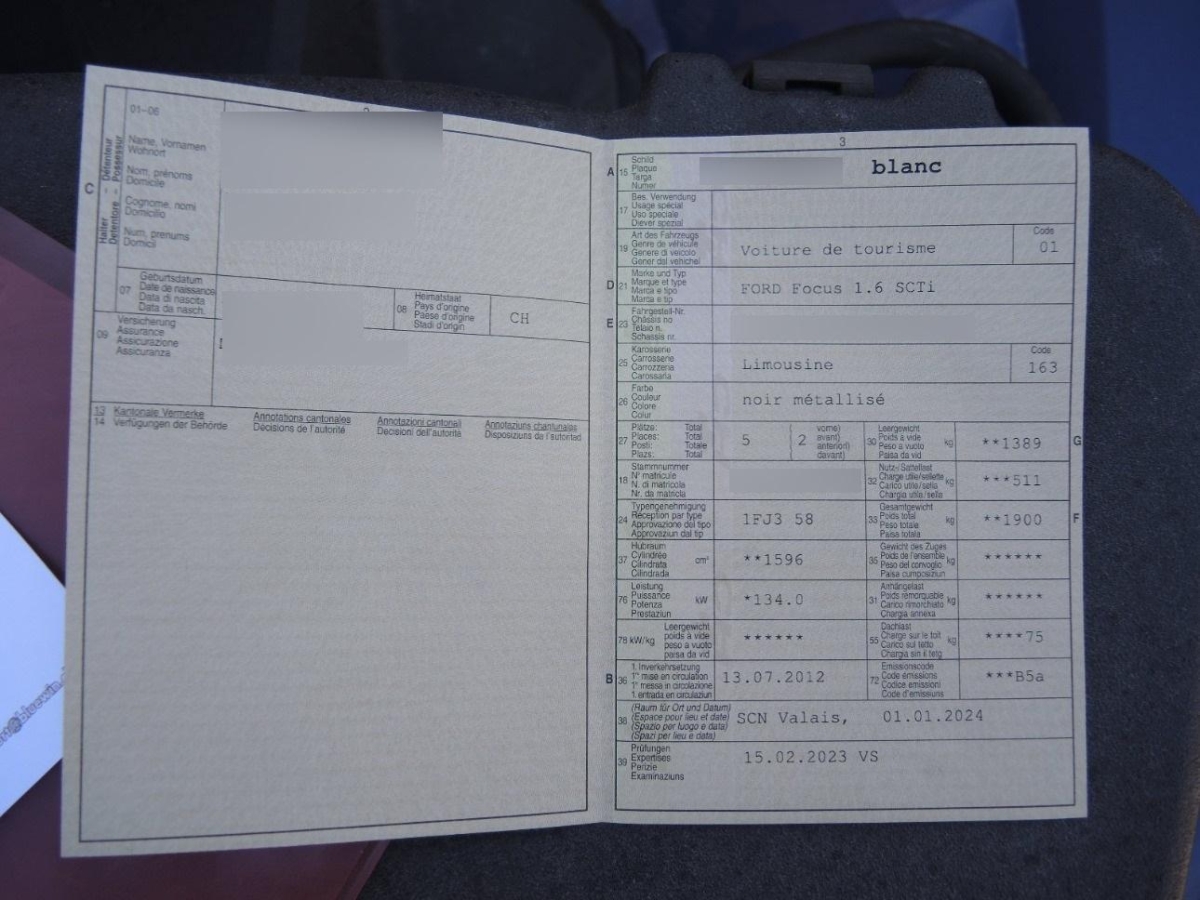 01–06
Détenteur
Possesseur
Halter
Detentore
C
Name, Vornamen
Wohnort
Nom, prénoms
Domicile
Cognome, nomi
Domicilio
Num, prenums
Domicil
07
Geburtsdatum
Date de naissance
Data di nascita
Data da nasch.
08
Heimatstaat
Pays d'origine
Paese d'origine
Stadi d'origin
CH
09
Versicherung
Assurance
Assicurazione
Assicuranza
13 Kantonale Vermerke Annotations cantonales Annotazioni cantonali Annotaziuns chantunales
14 Verfügungen der Behörde Décisions de l'autorité Decisioni dell'autorità Disposiziuns de l'autoritad
3
A 15
Schild
Plaque
Targa
Numer
blanc
17
Bes. Verwendung
Usage spécial
Uso speciale
Diever spezial
19
Art des Fahrzeugs
Genre de véhicule
Genere di veicolo
Gener dal vehichel
Voiture de tourisme
Code
01
D 21
Marke und Typ
Marque et type
Marca e tipo
Marca e tip
FORD Focus 1.6 SCTi
E 23
Fahrgestell-Nr.
Châssis no
Telaio n.
Schassis nr.
25
Karosserie
Carrosserie
Carrozzeria
Carossaria
Limousine
Code
163
26
Farbe
Couleur
Colore
Colur
noir métallisé
27
Plätze: Total
Places: Total
Posti: Totale
Plazs: Total
5 2
vorne)
avant)
anteriori)
davant)
30
Leergewicht
Poids à vide
Peso a vuoto
Paisa da vid
kg
**1389
G
18
Stammnummer
N° matricule
N. di matricola
Nr. da matricla
32
Nutz-/Sattellast
Charge utile/sellette
Carico utile/sella
Chargia utile/sella
kg
***511
24
Typengenehmigung
Réception par type
Approvazione del tipo
Approvaziun dal tip
1FJ3 58
33
Gesamtgewicht
Poids total
Peso totale
Paisa totala
kg
**1900
F
37
Hubraum
Cylindrée
Cilindrata
Cilindrada
cm³
**1596
35
Gewicht des Zuges
Poids de l'ensemble
Peso del convoglio
Paisa cumposiziun
kg
******
76
Leistung
Puissance
Potenza
Prestaziun
kW
*134.0
31
Anhängelast
Poids remorquable
Carico rimorchiato
Chargia annexa
kg
******
78 kW/kg
Leergewicht
poids à vide
peso a vuoto
paisa da vid
******
55
Dachlast
Charge sur le toit
Carico sul tetto
Chargia sin il tetg
kg
****75
B 36
1. Inverkehrsetzung
1re mise en circulation
1a messa in circolazione
1. entrada en circulaziun
13.07.2012
72
Emissionscode
Code émissions
Codice emissioni
Code d'emissiuns
***B5a
38
(Raum für Ort und Datum)
(Espace pour lieu et date)
(Spazio per luogo e data)
(Spazi per lieu e data)
SCN Valais, 01.01.2024
39
Prüfungen
Expertises
Perizie
Examinaziuns
15.02.2023 VS